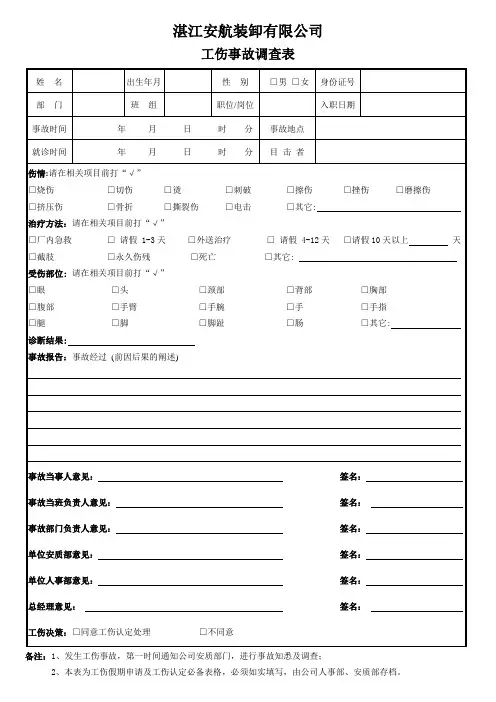 湛江安航装卸有限公司
工伤事故调查表
姓 名 出生年月 性 别 □男 □女 身份证号
部 门 班 组 职位/岗位 入职日期
事故时间 年 月 日 时 分 事故地点
就诊时间 年 月 日 时 分 目 击 者
伤情:请在相关项目前打“√”
□烧伤 □切伤 □烫 □刺破 □擦伤 □挫伤 □磨擦伤
□挤压伤 □骨折 □撕裂伤 □电击 □其它:
治疗方法: 请在相关项目前打“√”
□厂内急救 □ 请假 1-3天 □外送治疗 □ 请假 4-12天 □请假10天以上 天
□截肢 □永久伤残 □死亡 □其它:
受伤部位: 请在相关项目前打“√”
□眼 □头 □颈部 □背部 □胸部
□腹部 □手臂 □手腕 □手 □手指
□腿 □脚 □脚趾 □肠 □其它:
诊断结果:
事故报告: 事故经过 (前因后果的阐述)
事故当事人意见: 签名:
事故当班负责人意见: 签名:
事故部门负责人意见: 签名:
单位安质部意见: 签名:
单位人事部意见: 签名:
总经理意见: 签名:
工伤决策: □同意工伤认定处理 □不同意
备注: 1、发生工伤事故，第一时间通知公司安质部门，进行事故知悉及调查;
2、本表为工伤假期申请及工伤认定必备表格，必须如实填写，由公司人事部、安质部存档。